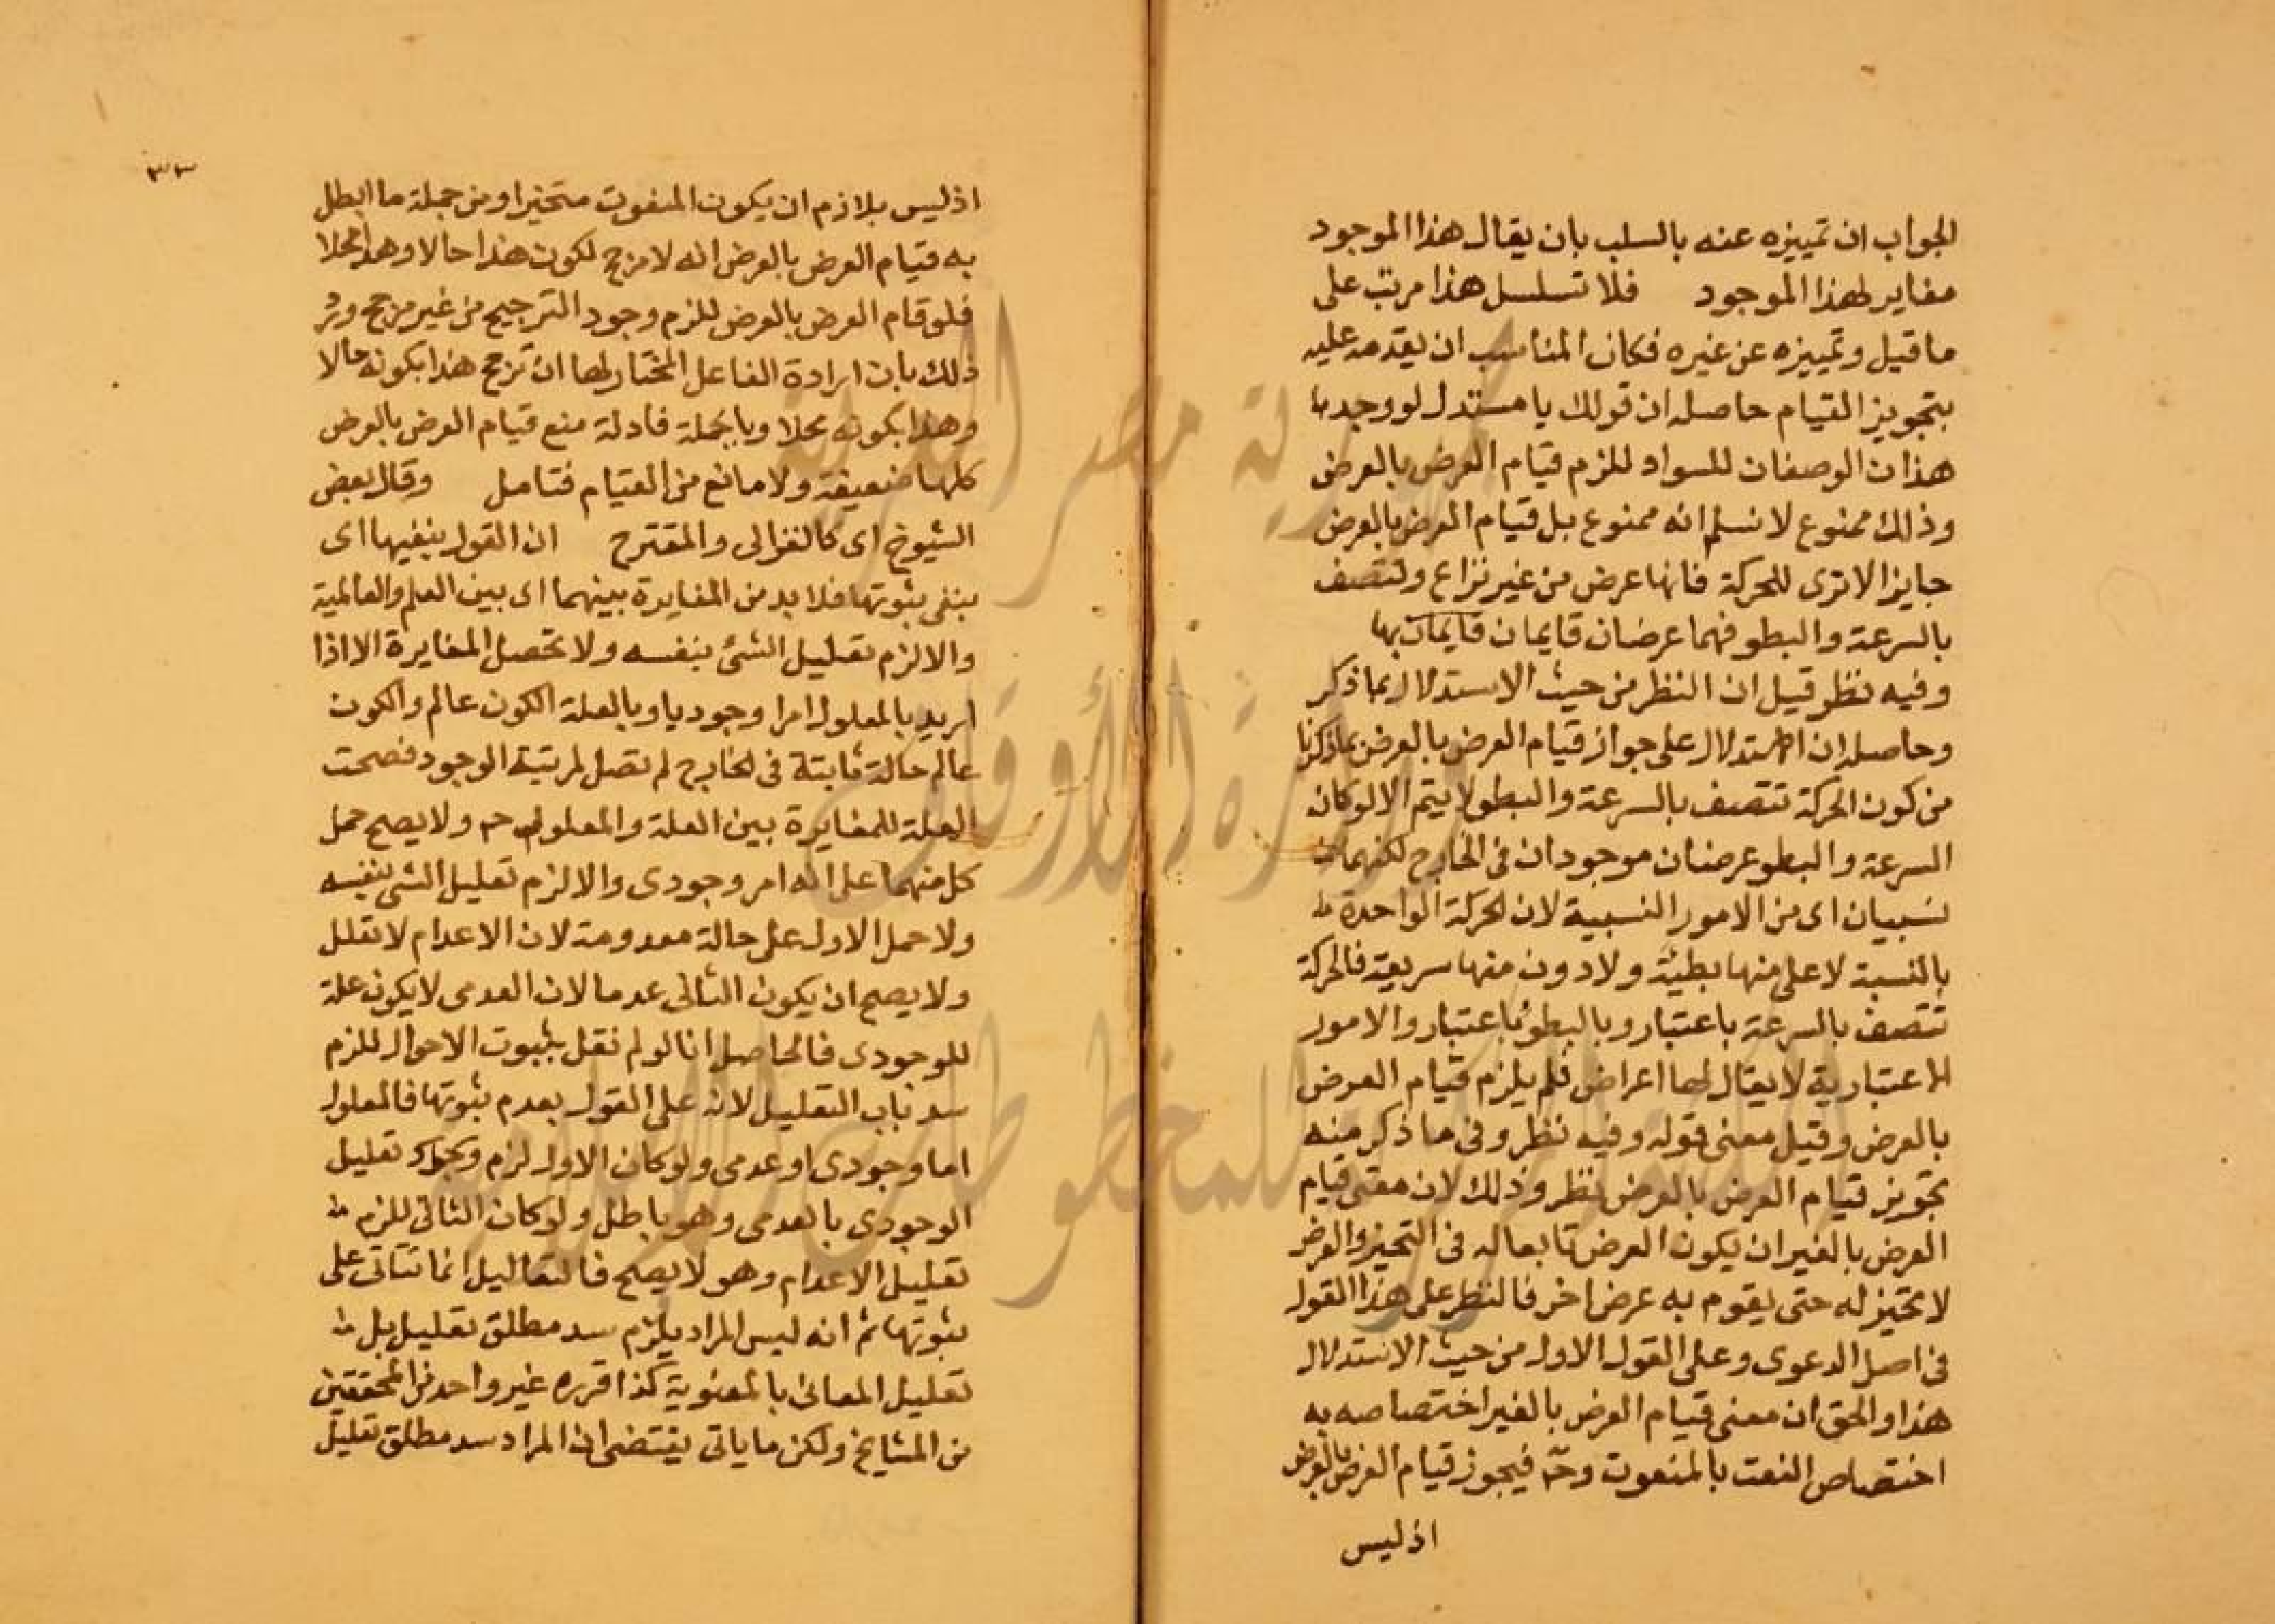 الجواب ان تمييزه عنه بالسلب بان يقال هذا الموجود
مغاير لهذا الموجود فلا تسلسل هذا مرتب على
ما قيل وتمييزه عن غيره فكان المناسب ان يقدمه عليه
بتجويز القيام حاصله ان قولك يا مستدل لو وجد
هذان الوصفان للسواد للزم قيام العرض بالعرض
وذلك ممنوع لا نسلم انه ممنوع بل قيام العرض بالعرض
جايز الا ترى للحركة فانها عرض من غير نزاع وتتصف
بالسرعة والبطو فهما عرضان قايمان قايمان بها
وفيه نظر قيل ان النظر من حيث الاستدلال بما ذكر
وحاصله ان الاستدلال على جواز قيام العرض بالعرض بما ذكرنا
من كون الحركة تتصف بالسرعة والبطو لا يتم الا لو كان
السرعة والبطو عرضان موجودان في الخارج لكنهما
نسبيان اى من الامور النسبية لان الحركة الواحدة
بالنسبة لاعلى منها بطيئة ولادون منها سريعة فالحركة
تتصف بالسرعة باعتبار وبالبطو باعتبار والامور
الاعتبارية لا يقال لها اعراض فلم يلزم قيام العرض
بالعرض وقيل معنى قوله وفيه نظر وفى ما ذكر منه
تجويز قيام العرض بالعرض نظر وذلك لان معنى قيام
العرض بالغير ان يكون العرض تابعا له فى التحيز والعرض
لا تحيز له حتى يقوم به عرض اخر فالنظر على هذا القول
فى اصل الدعوى وعلى القول الاول من حيث الاستدلال
هذا والحق ان معنى قيام العرض بالغير اختصاصه به
اختصاص النعت بالمنعوت وح فيجوز قيام العرض بالعرض
اذ ليس
٣٣
اذ ليس بلازم ان يكون المنعوت متحيزا ومن جملة ما ابطل
به قيام العرض بالعرض انه لا مرجح لكون هذا حالا وهذا محلا
فلو قام العرض بالعرض للزم وجود الترجيح من غير مرجح ورد
ذلك بان ارادة الفاعل المختار لها ان ترجح هذا بكونه حالا
وهذا بكونه محلا وبالجملة فادلة منع قيام العرض بالعرض
كلها ضعيفة ولا مانع من القيام فتامل وقال بعض
الشيوخ اى كالغزالى والمقترح ان القول بنفيها اى
بنفى ثبوتها فلا بد من المغايرة بينهما اى بين العلم والعالمية
والا لزم تعليل الشئ بنفسه ولا تحصل المغايرة الا اذا
اريد بالمعلول امرا وجوديا وبالعلة الكون عالم والكون
عالم حالة ثابتة فى الخارج لم تصل لمرتبة الوجود فصحت
العلة للمغايرة بين العلة والمعلول ح ولا يصح حمل
كل منهما على انه امر وجودى والا لزم تعليل الشئ بنفسه
ولا حمل الاول على حالة معدومة لان الاعدام لا تعلل
ولا يصح ان يكون الثانى عدما لان العدمى لا يكون علة
للوجودى فالحاصل انا لو لم نقل بثبوت الاحوال للزم
سد باب التعليل لانه على القول بعدم ثبوتها فالمعلول
اما وجودى او عدمى ولو كان الاول لزم تعليل
الوجودى بالعدمى وهو باطل ولو كان الثانى للزم
تعليل الاعدام وهو لا يصح فالتعاليل انما تتاتى على
ثبوتها ثم انه ليس المراد يلزم سد مطلق تعليل بل
تعليل المعانى بالمعنوية كذا قرره غير واحد من المحققين
من المشايخ ولكن ما ياتى يقتضى ان المراد سد مطلق تعليل